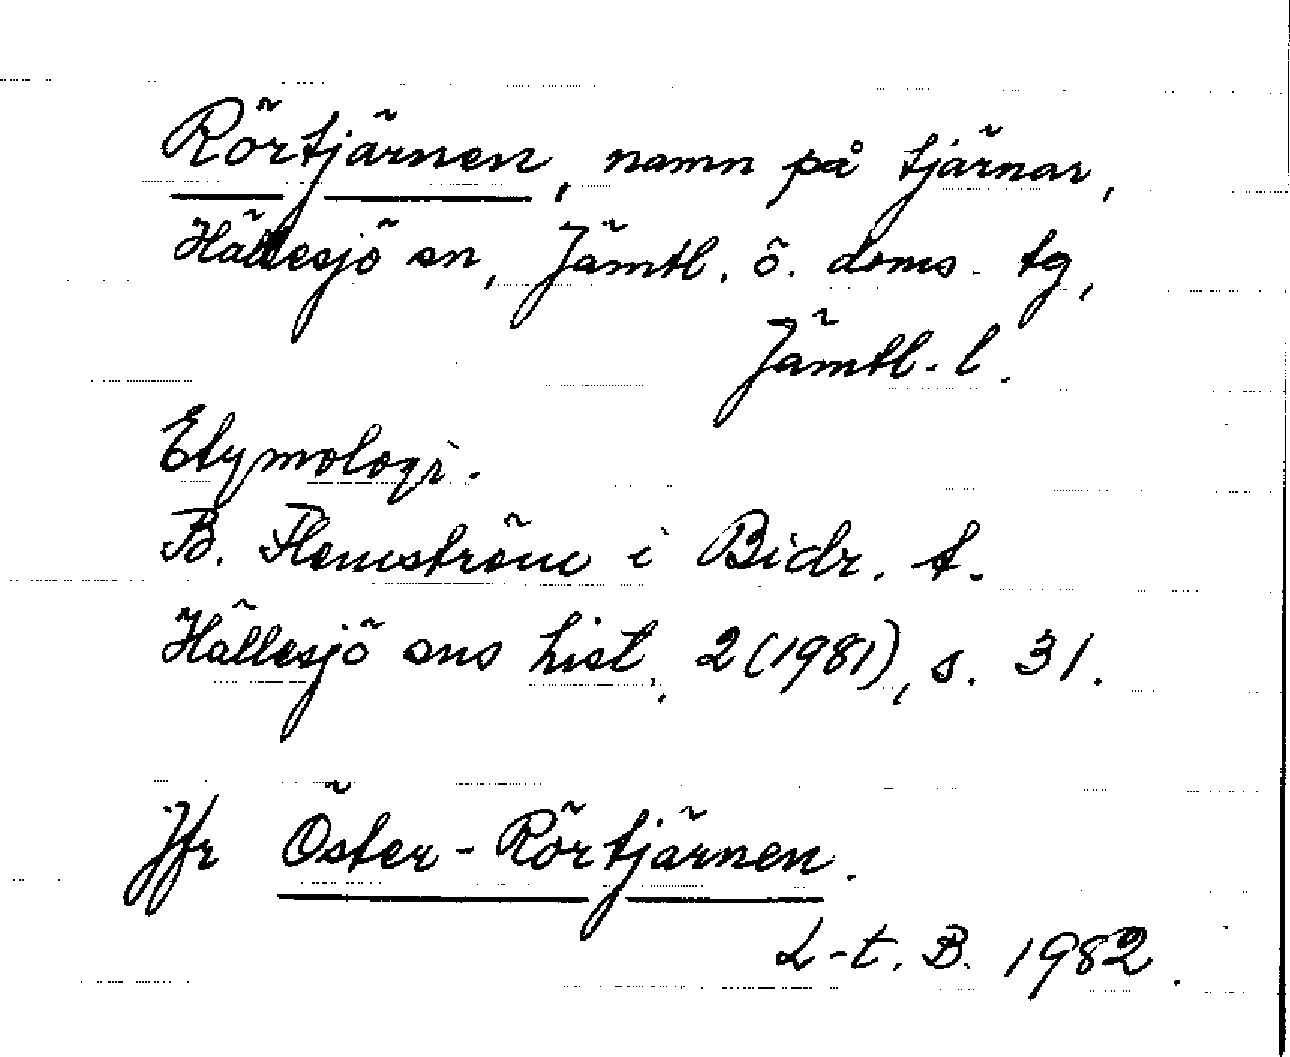 Rörtjärnen, namn på tjärnar,
Hällesjö sn, Jämtl. ö. doms. tg,
Jämtl. l.
Etymologi.
B. Flemström i Bidr. t.
Hällesjö sns hist., 2(1981), s. 31.
Jfr Öster-Rörtjärnen.
L-t. B. 1982.